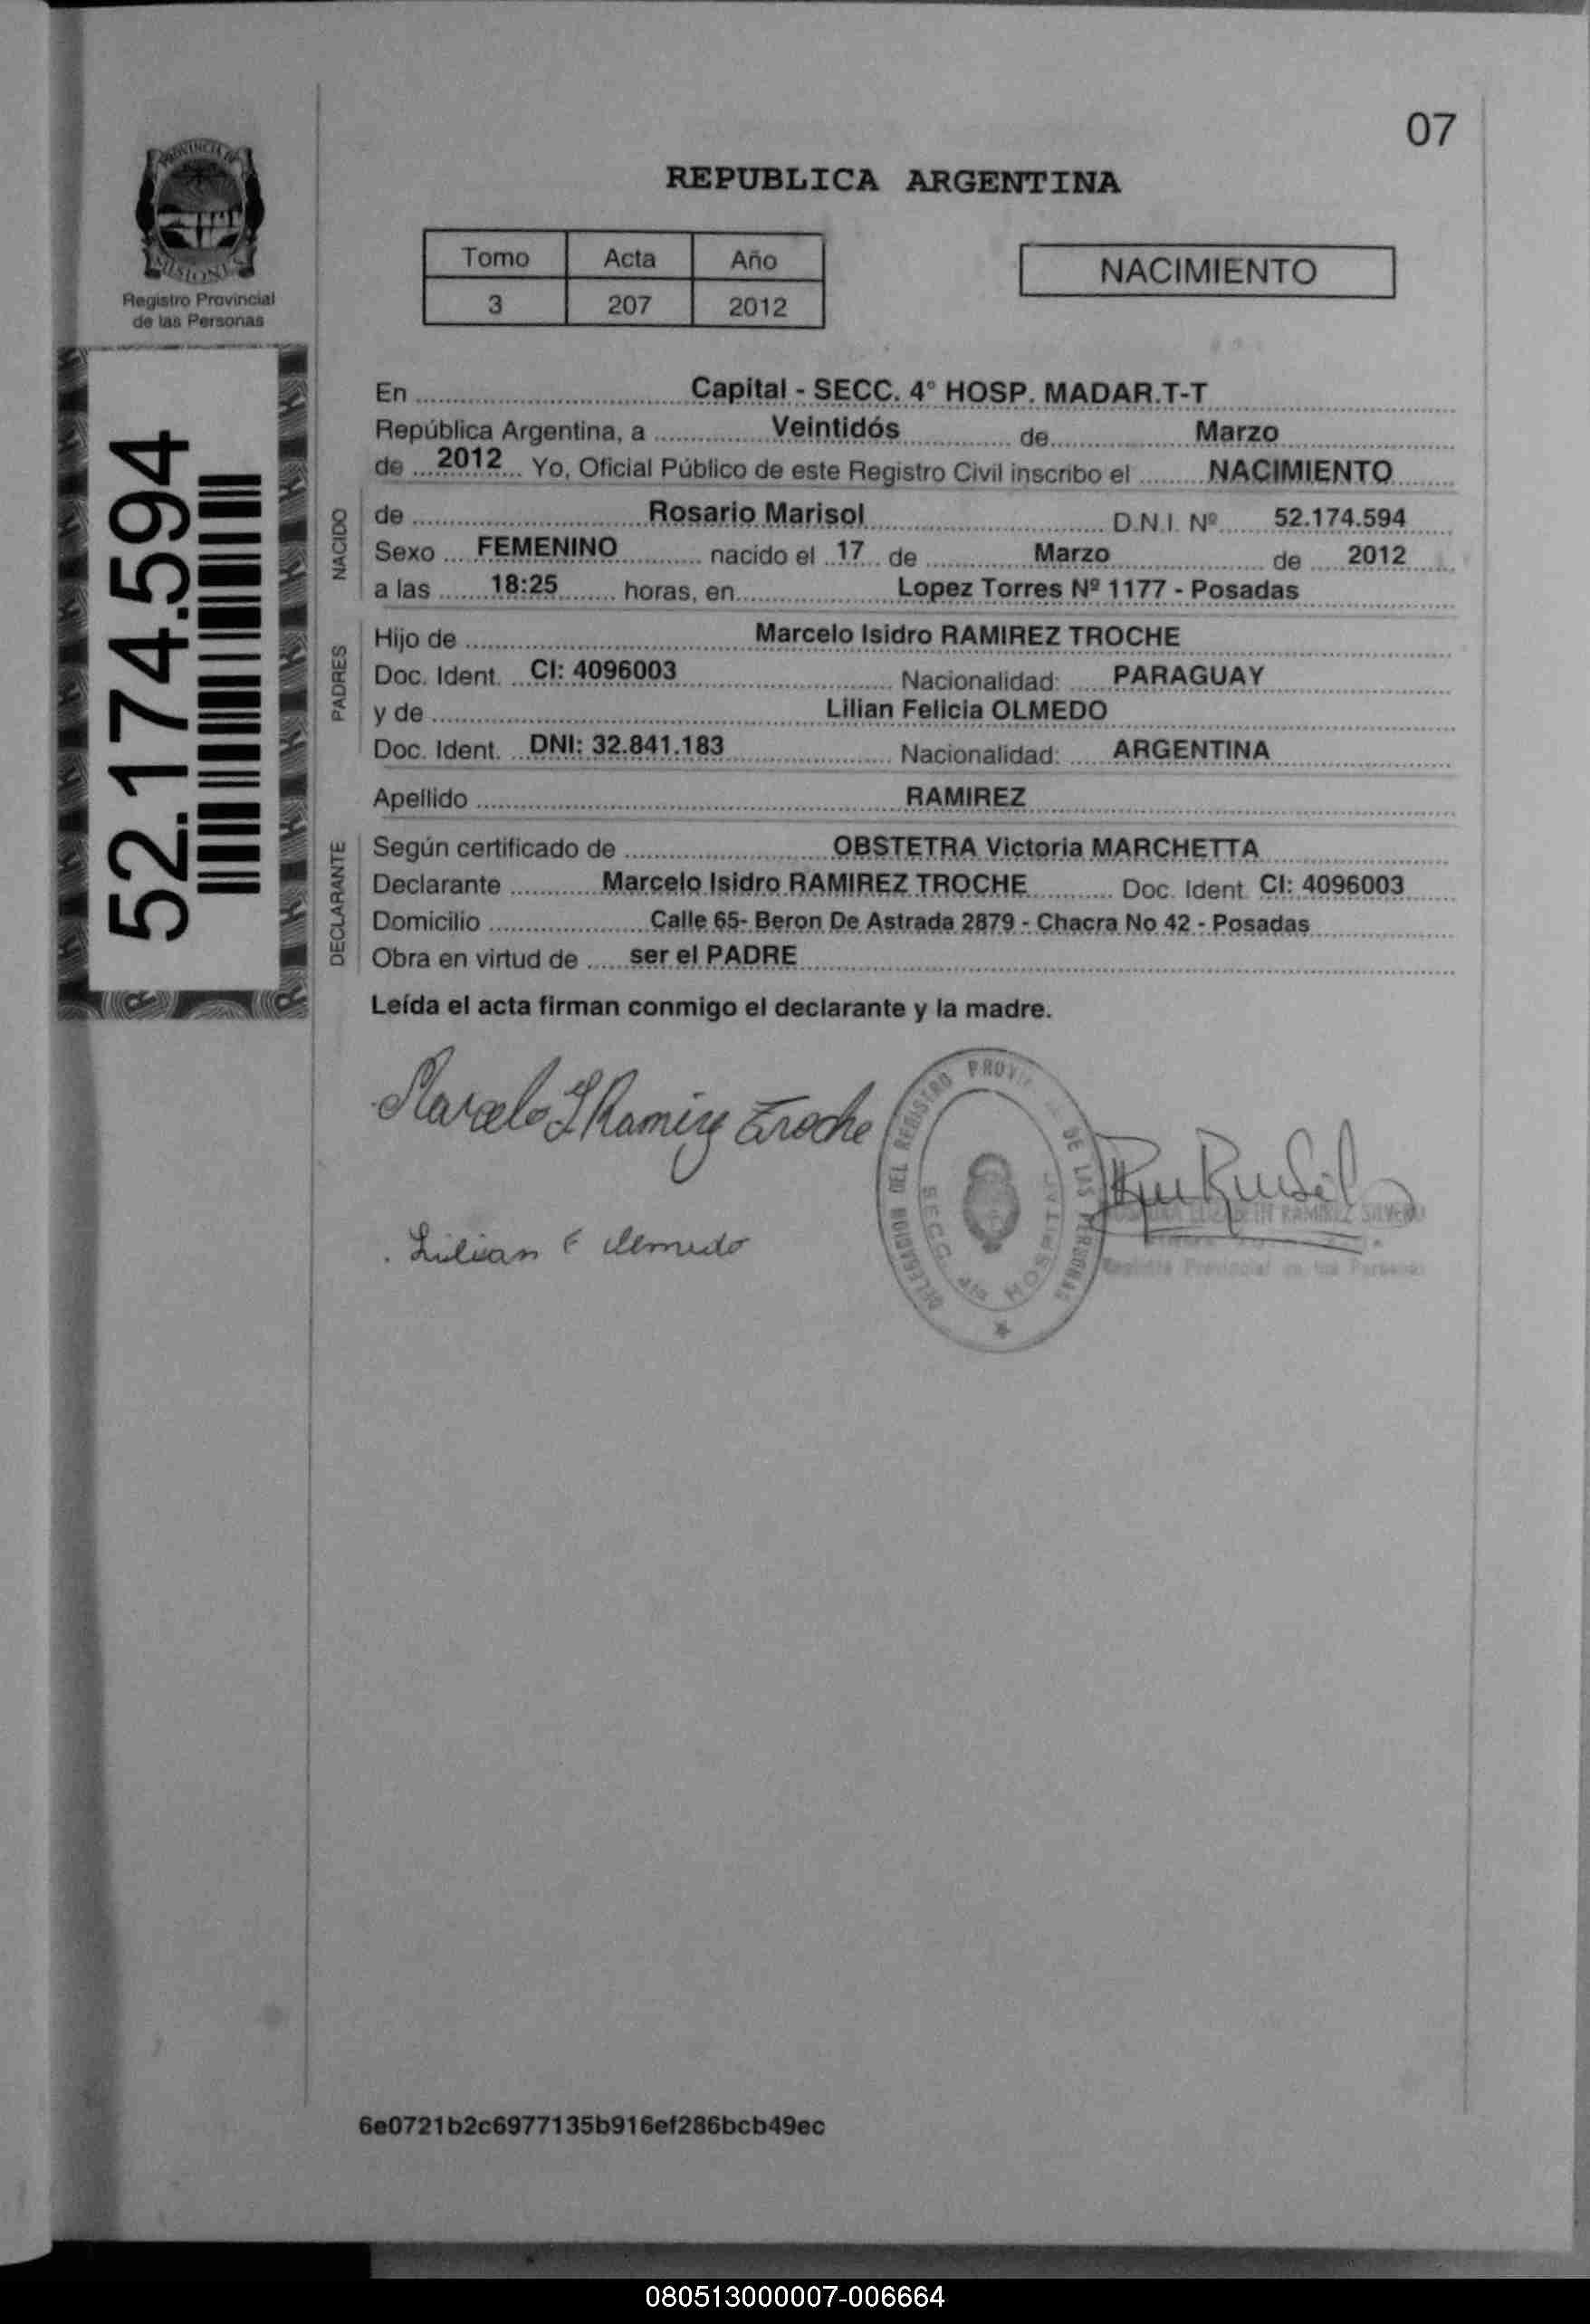 07
REPUBLICA ARGENTINA
PROVINCIA DE
MISIONES
Registro Provincial
de las Personas
Tomo Acta Año
3 207 2012
NACIMIENTO
52.174.594
En Capital - SECC. 4° HOSP. MADAR.T-T
República Argentina, a Veintidós de Marzo
de 2012 Yo, Oficial Público de este Registro Civil inscribo el NACIMIENTO
NACIDO
de Rosario Marisol D.N.I. Nº 52.174.594
Sexo FEMENINO nacido el 17 de Marzo de 2012
a las 18:25 horas, en Lopez Torres Nº 1177 - Posadas
PADRES
Hijo de Marcelo Isidro RAMIREZ TROCHE
Doc. Ident. CI: 4096003 Nacionalidad: PARAGUAY
y de Lilian Felicia OLMEDO
Doc. Ident. DNI: 32.841.183 Nacionalidad: ARGENTINA
Apellido RAMIREZ
DECLARANTE
Según certificado de OBSTETRA Victoria MARCHETTA
Declarante Marcelo Isidro RAMIREZ TROCHE Doc. Ident. CI: 4096003
Domicilio Calle 65- Beron De Astrada 2879 - Chacra No 42 - Posadas
Obra en virtud de ser el PADRE
Leída el acta firman conmigo el declarante y la madre.
Marcelo I Ramirez Troche
Lilian F Olmedo
DELEGACION DEL REGISTRO DE LAS PERSONAS
SECC. 4ta HOSPITAL
ELIZABETH RAMIREZ
Registro Provincial de las Personas
6e0721b2c6977135b916ef286bcb49ec
080513000007-006664